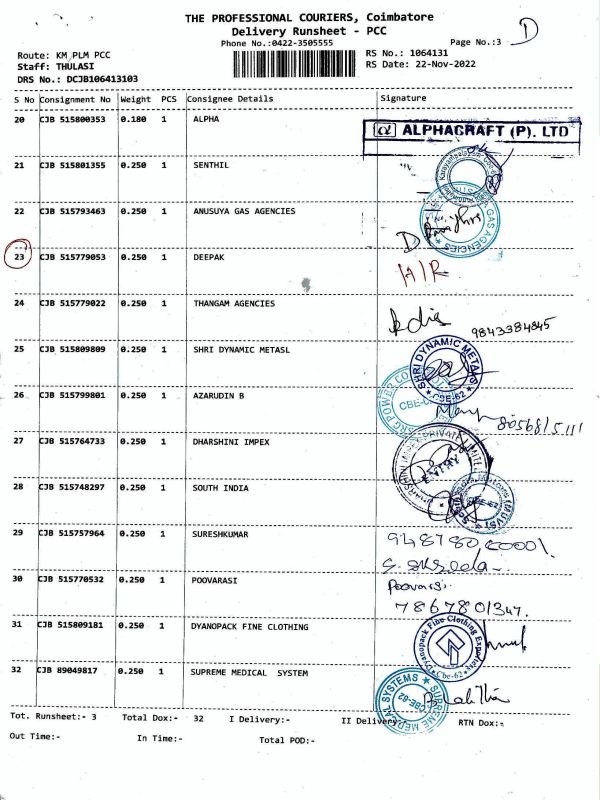 THE PROFESSIONAL COURIERS, Coimbatore
Delivery Runsheet - PCC
Phone No.:0422-3505555 Page No.:3 D
Route: KM PLM PCC RS No.: 1064131
Staff: THULASI RS Date: 22-Nov-2022
DRS No.: DCJB106413103
S No Consignment No Weight PCS Consignee Details Signature
20 CJB 515800353 0.180 1 ALPHA
α ALPHAGRAFT (P). LTD
21 CJB 515801355 0.250 1 SENTHIL
22 CJB 515793463 0.250 1 ANUSUYA GAS AGENCIES
GAS AGENCIES
23 CJB 515779053 0.250 1 DEEPAK
D
H/R
24 CJB 515779022 0.250 1 THANGAM AGENCIES
9843384845
25 CJB 515809809 0.250 1 SHRI DYNAMIC METASL
SHRI DYNAMIC METALS
CBE-62
26 CJB 515799801 0.250 1 AZARUDIN B
POWER
27 CJB 515764733 0.250 1 DHARSHINI IMPEX
IMPEX PRIVATE LIMITED
ENTRY
28 CJB 515748297 0.250 1 SOUTH INDIA
29 CJB 515757964 0.250 1 SURESHKUMAR
30 CJB 515770532 0.250 1 POOVARASI
Poovarasi
7867801347
31 CJB 515809181 0.250 1 DYANOPACK FINE CLOTHING
Dyanopack Fine Clothing
Cbe-62
32 CJB 89049817 0.250 1 SUPREME MEDICAL SYSTEM
SUPREME MEDICAL SYSTEMS
CBE-62
Tot. Runsheet:- 3 Total Dox:- 32 I Delivery:- II Delivery:- RTN Dox:-
Out Time:- In Time:- Total POD:-